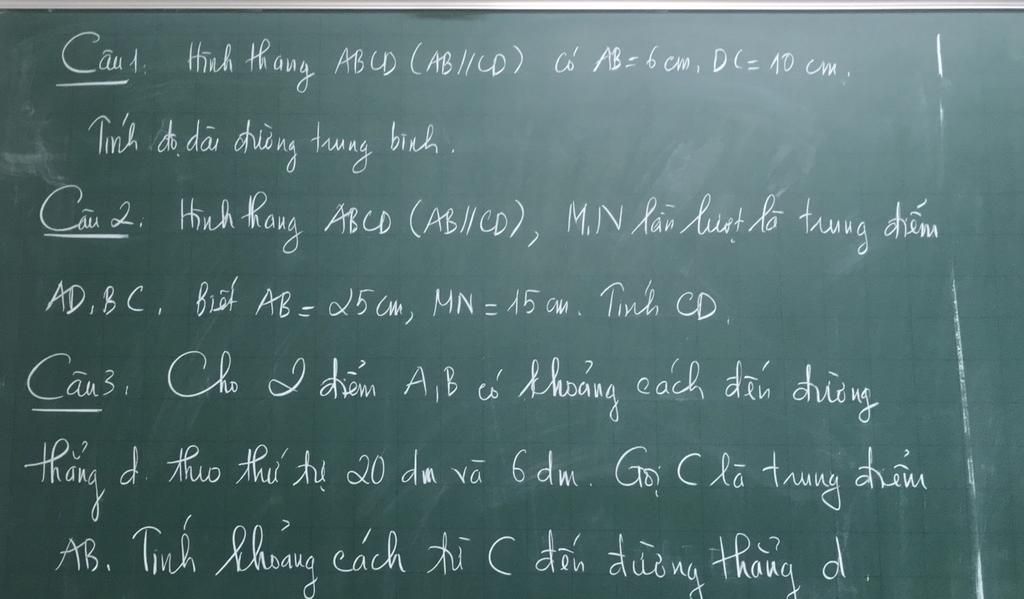 Câu 1. Hình thang ABCD (AB//CD) có AB = 6 cm, DC = 10 cm.
Tính độ dài đường trung bình.
Câu 2. Hình thang ABCD (AB//CD), M,N lần lượt là trung điểm
AD, BC. Biết AB = 25 cm, MN = 15 cm. Tính CD.
Câu 3. Cho 2 điểm A,B có khoảng cách đến đường
thẳng d theo thứ tự 20 dm và 6 dm. Gọi C là trung điểm
AB. Tính khoảng cách từ C đến đường thẳng d.